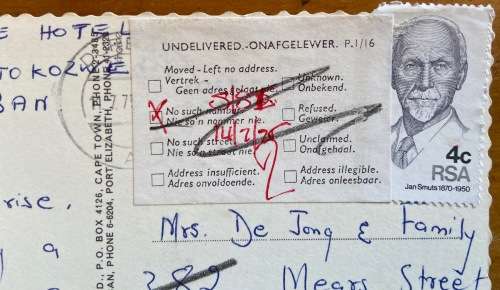 E HOTEL
TOKOZWE
BAN
UNDELIVERED.-ONAFGELEWER. P.1/16
Moved - Left no address.
Vertrek -
Geen adres
Unknown.
Onbekend.
No such number
Nie so'n nommer nie.
Refused.
Geweier.
No such street
Nie so'n straat nie.
Unclaimed.
Onafgehaal.
Address insufficient.
Adres onvoldoende.
Address illegible.
Adres onleesbaar.
14/2/75
2
4c
RSA
Jan Smuts 1870-1950
D., P.O. BOX 4126, CAPE TOWN, PHONE 2-345
AN, PHONE 6-6204, PORT ELIZABETH, PHONE 4-232
rise,
y a
Mrs. De Jong & Family
282 Mears Street